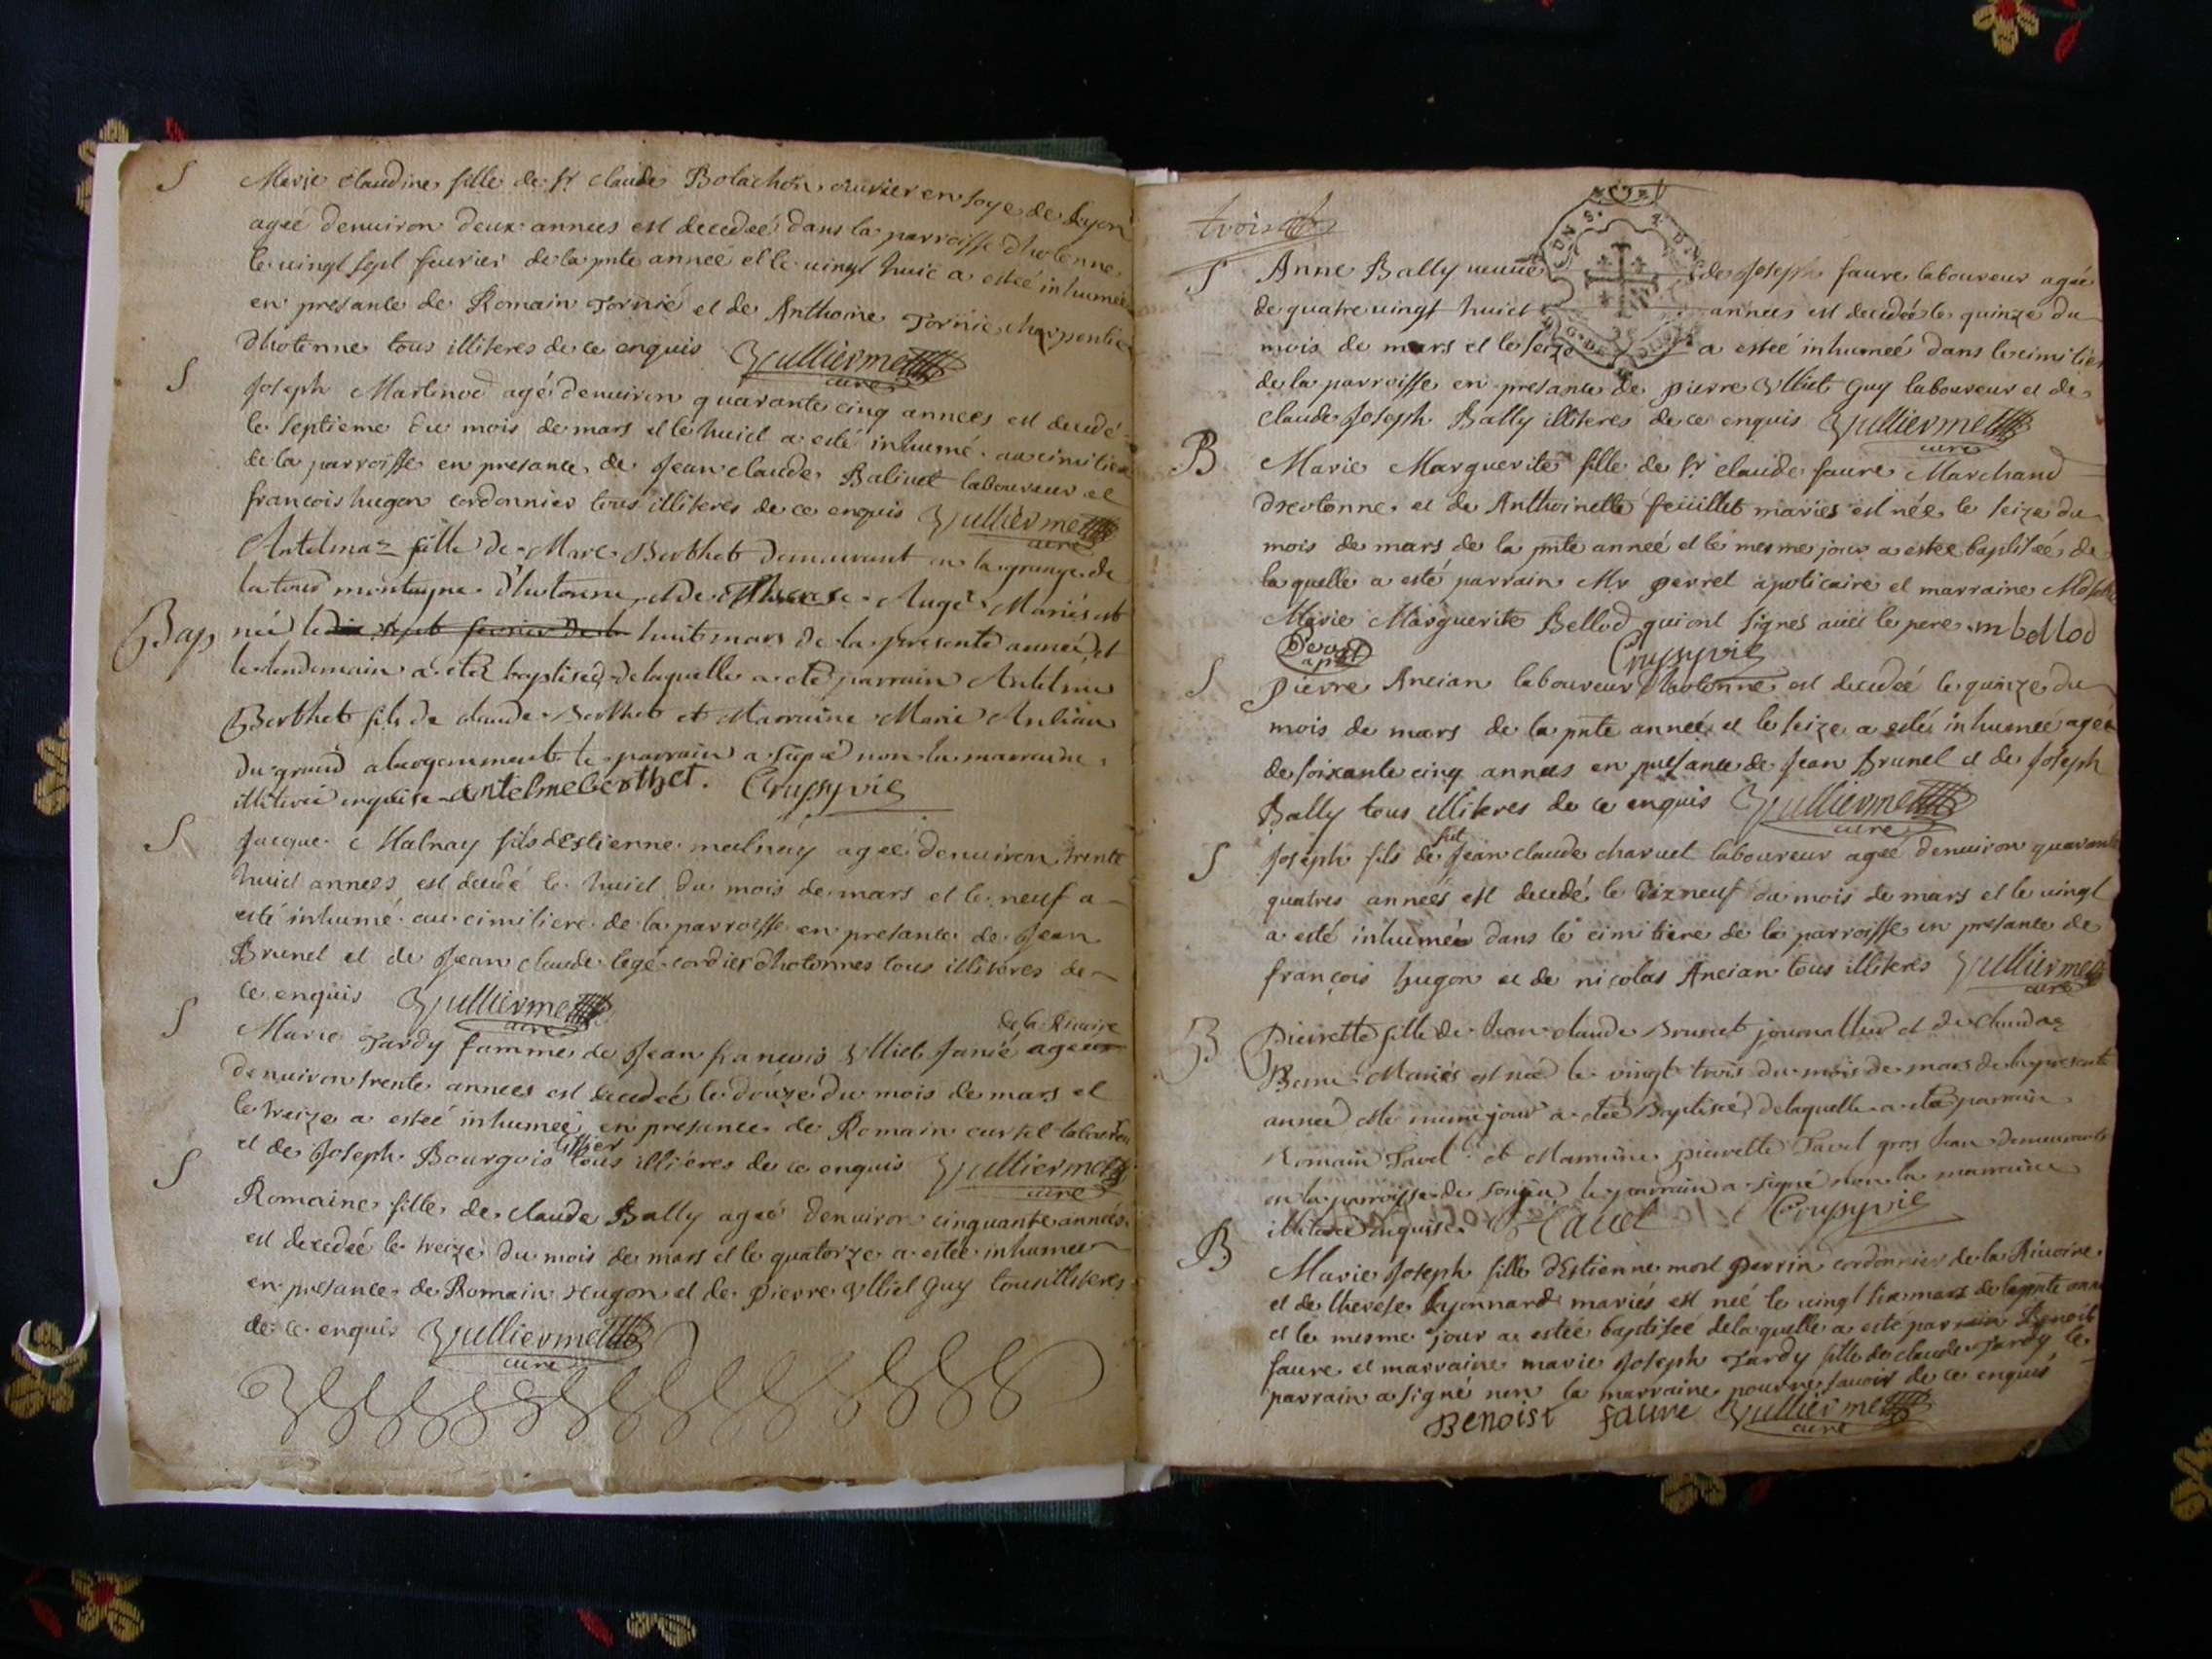 S
Marie Claudine fille de sr claude Bolachon ouvrier en soye de Lyon
ageé denuiron deux annees est decedeé dans la parroisse dhotonne
le uingt sept feurier de la pnte anneé et le uingt huit a esteé inhumeé
en presance de Romain Tornié et de Anthoine Tornié charpentier
dhotonne tous illiteres de ce enquis Jullierme
curé
S
Joseph Martinod agé denuiron quarante cinq annees est decedé
le septieme du mois de mars et le huict a esté inhumé au cimitiere
de la parroisse en presance de Jean claude Balivet laboureur et
francois hugon cordonnier tous illiteres de ce enquis Jullierme
curé
Antelmaz fille de Marc Berthet demeurant en la grange de
la tour montagne d'hotonne et de Therese Augé Mariés est
Bap
née le huit mars de la presente année et
le lendemain a eté baptiseé de laquelle a eté parrain Antelme
Berthet fils de claude Berthet et Marraine Marie Ancian
du grand abergemment le parrain a signé non la marraine
illiterée enquise antelme berthet. Crussyvie
S
Jacque Malnay fils dEstienne malnay ageé denuiron trente
huict annees est decedé le huict du mois de mars et le neuf a
esté inhumé au cimitiere de la parroisse en presante de Jean
Brunel et de Jean claude legé cordier dhotonnes tous illiteres de
ce enquis Jullierme
curé
S
de la Riuoire
Marie Tardy famme de Jean francois Ulliet Janié
denuiron trente annees est decedeé le douze du mois de mars et
le treize a esteé inhumeé en presance de Romain laboureur
tissier
et de Joseph Bourgois tous illiéres de ce enquis Jullierme
curé
S
Romaine fille de claude Bally ageé denuiron cinquante annees
est decedeé le treize du mois de mars et le quatorze a esteé inhumeé
en presance de Romain hugon et de Pierre Ulliet Guy tous illiteres
de ce enquis Jullierme
curé
trois
S
Anne Bally ueuue de Joseph faure laboureur ageé
de quatre uingt huict annees est decedeé le quinze du
mois de mars et le seize a esteé inhumeé dans le cimitiere
de la parroisse en presance de pierre Ulliet Guy laboureur et de
claude Joseph Bally illiteres de ce enquis Jullierme
curé
B
Marie Marguerite fille de sr claude faure Marchand
et de Anthoinette feüillet mariés est née le seize du
mois de mars de la pnte anneé et le mesme jour a esteé baptiseé de
la quelle a esté parrain Mr perret apoticaire et marraine
Marie Marguerite Bellod qui ont signes auec le pere m bellod
Perret
apre
Crussyvie
S
Pierre Ancian laboureur dhotonne est decedeé le quinze du
mois de mars de la pnte anneé et le seize a estéé inhumeé ageé
de soixante cinq annees en presance de Jean Brunel et de Joseph
Bally tous illiteres de ce enquis Jullierme
curé
S
fut
Joseph fils de Jean claude charuet laboureur ageé denuiron quarante
quatres annees est decedé le dixneuf du mois de mars et le uingt
a esté inhumé dans le cimitiere de la parroisse en presance de
françois hugon et de nicolas Ancian tous illiteres Jullierme
curé
B
Pierrette fille de Jean claude Brunet journallier et de claudaz
Mariés est neé le vingt trois du mois de mars de la presente
année et le meme jour a eté Baptiseé de laquelle a eté parrain
Romain Tavel et Marraine pierrette Tavel gros Jean demeurante
en la parroisse de songieu le parrain a signé non la marraine
illiterée enquise. R Tavel Crussyvie
B
Marie Joseph fille dEstienne mort Perrin cordonnier de la Riuoire
et de therese Lyonnard mariés est neé le uingt six mars de la pnte anneé
et le mesme jour a esteé baptiseé de la quelle a esté parrain Benoit
faure et marraine marie Joseph Tardy fille de claude Tardy le
parrain a signé non la marraine pour ne sauoir de ce enquis
Benoist faure Jullierme
curé